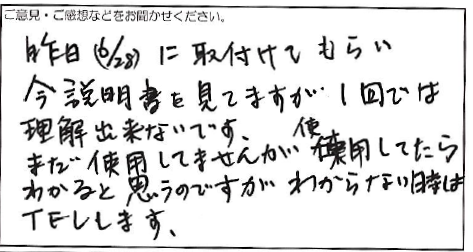 ご意見・ご感想などをお聞かせください。
昨日(6/28)に取付けてもらい
今説明書を見てますが1回では
理解出来ないです、
まだ使用してませんが使用してたら
わかると思うのですがわからない時は
TELします、